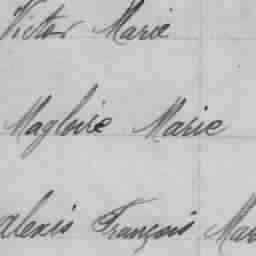 Victor Marie
Magloire Marie
alexis François Mar